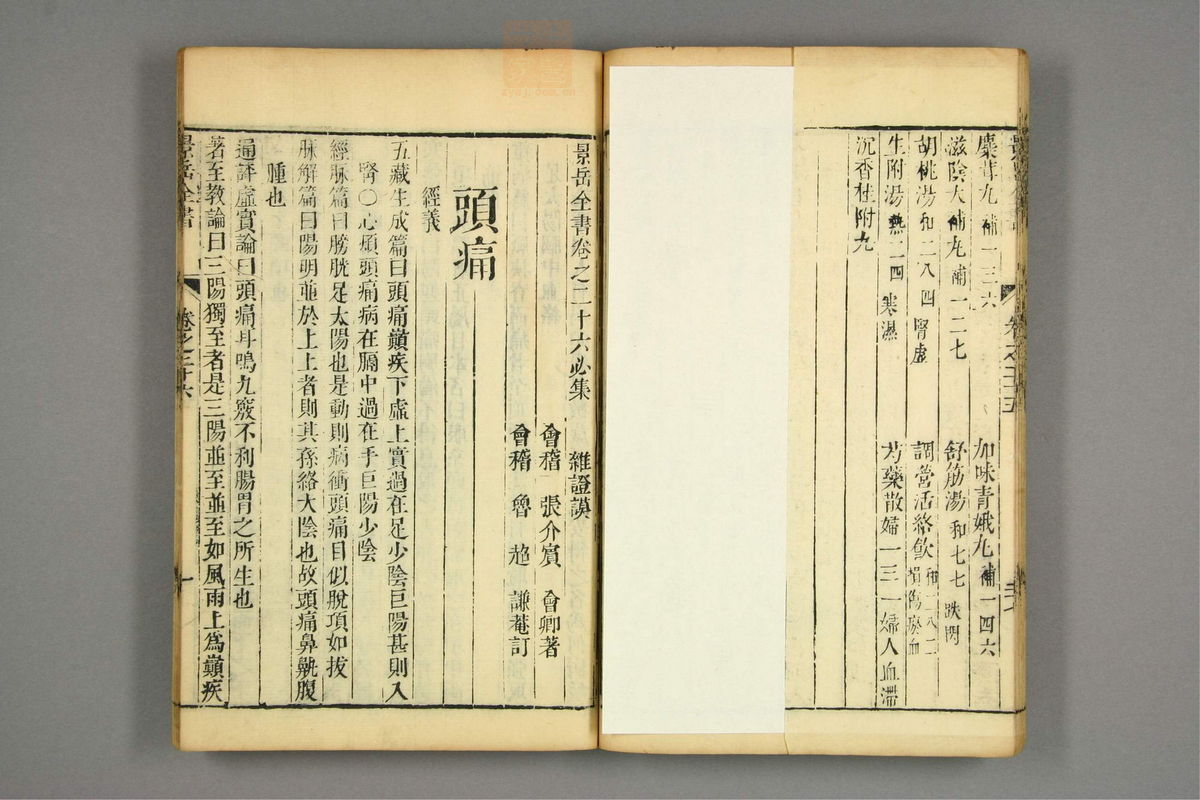 麋茸丸 補一三六 加味青娥丸 補一四六
滋陰大補丸 補一二七 舒筋湯 和七七 跌閃
胡桃湯 和二八四 腎虛 調營活絡飲 和二八二 損傷瘀血
生附湯 熱二四 寒濕 芍藥散 婦一三一 婦人血滯
沉香桂附丸
景岳全書卷之二十六必集 雜證謨
會稽 張介賓 會卿著
會稽 魯 超 謙菴訂
頭痛
經義
五藏生成篇曰頭痛巔疾下虛上實過在足少陰巨陽甚則入
腎〇心煩頭痛病在膈中過在手巨陽少陰
經脉篇曰膀胱足太陽也是動則病衝頭痛目似脫項如拔
脉解篇曰陽明並於上上者則其孫絡太陰也故頭痛鼻鼽腹
腫也
通評虛實論曰頭痛耳鳴九竅不利腸胃之所生也
著至教論曰三陽獨至者是三陽並至並至如風雨上為巔疾
景岳全書 卷之二十六 一